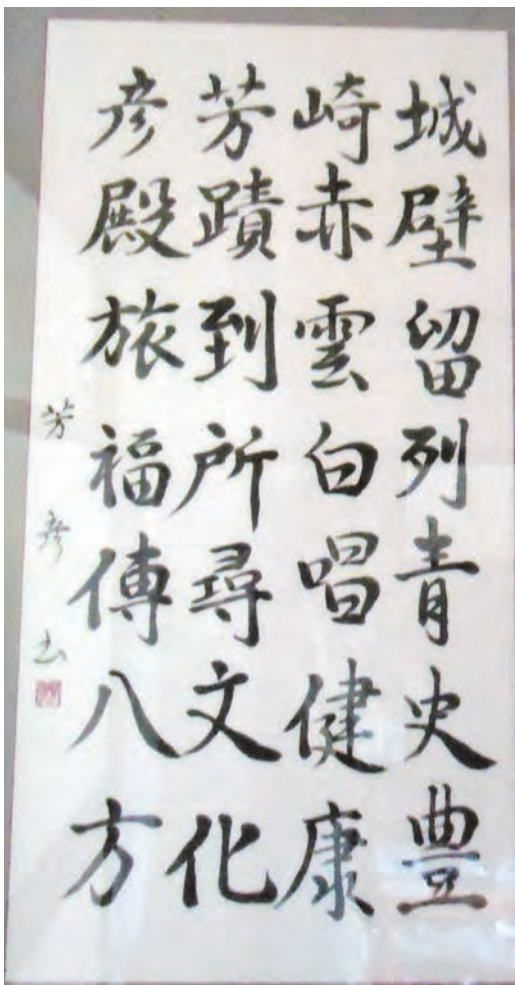 城壁留列青史豊
崎赤雲白唱健康
芳蹟到所尋文化
彦殿旅福傳八方
芳彦書